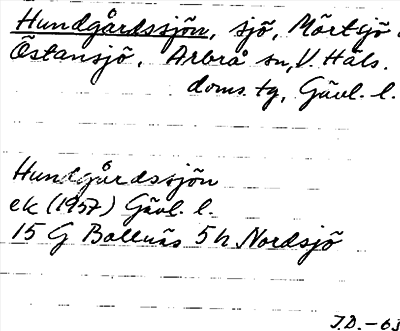 Hundgårdssjön, sjö, Mörtsjö
Östansjö, Arbrå sn, V. Häls.
doms. tg, Gävl. l.
Hundgårdssjön
ek (1957) Gävl. l.
15 G Bollnäs 5h Nordsjö
J.D. -63